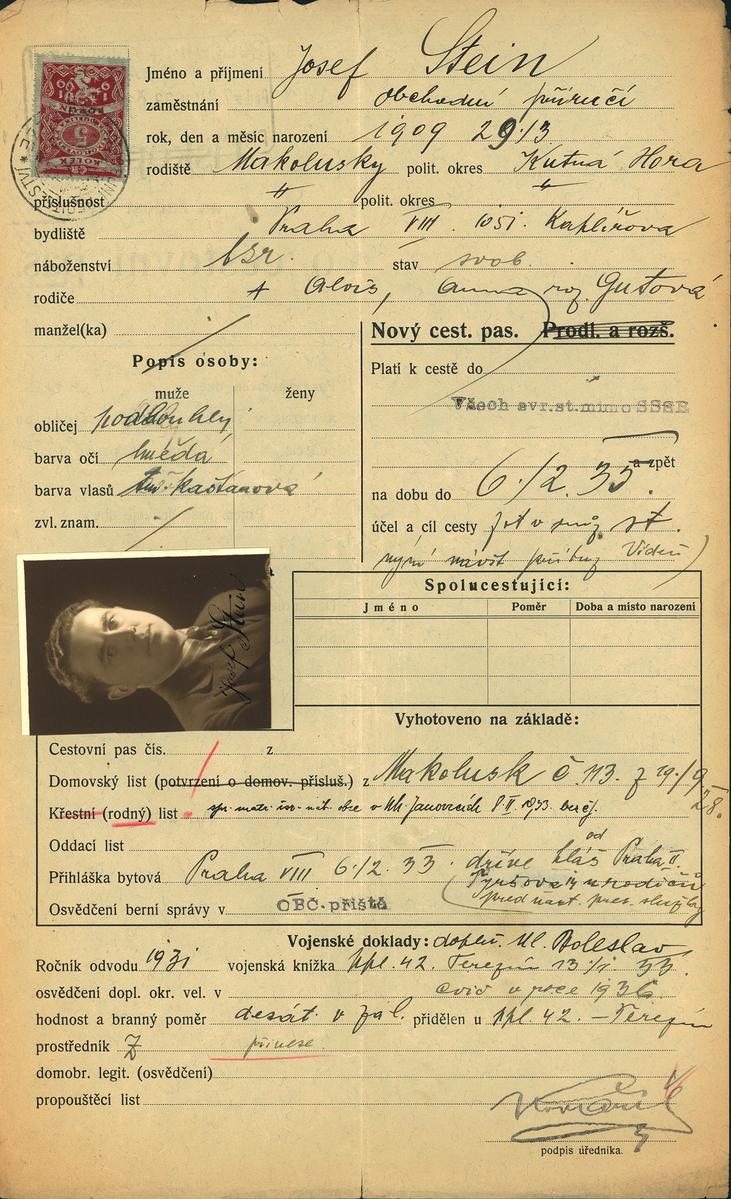 Jméno a příjmení Josef Stein
zaměstnání obchodní příručí
rok, den a měsíc narození 1909 29/3
rodiště Makolusky polit. okres Kutná Hora
příslušnost " polit. okres "
bydliště Praha VIII. 1051. Kaplířova
náboženství izr. stav svob.
rodiče † Alois, Anna roz. Gutová
manžel(ka)
Nový cest. pas. Prodl. a rozš.
Popis osoby:
muže ženy
obličej podlouhlý
barva očí hnědá
barva vlasů kaštanová
zvl. znam.
Platí k cestě do
Všech evr.st.mimo SSSR
a zpět
na dobu do 6./2. 35.
účel a cíl cesty
nyní návšt. příbuz. Vídeň
Spolucestující:
Jméno Poměr Doba a místo narození
Josef Stein
Vyhotoveno na základě:
Cestovní pas čís. z
Domovský list (potvrzení o domov. přísluš.) z Makolusk č 113. z 19./9 28.
Křestní (rodný) list obce v Uh. Janovicích 8 II. 1933
Oddací list
Přihláška bytová Praha VIII 6./2. 33. dříve hláš od Praha II.
Tyršova u rodičů
před nast. pres. služby
Osvědčení berní správy v OBČ.příště
Vojenské doklady: doplň. Ml. Boleslav
Ročník odvodu 1931 vojenská knížka hpl. 42. Terezín 13/1 33.
osvědčení dopl. okr. vel. v cvič v roce 1936.
hodnost a branný poměr desát. v zál. přidělen u hpl. 42. – Terezín
prostředník Z přinese
domobr. legit. (osvědčení)
propouštěcí list
podpis úředníka.